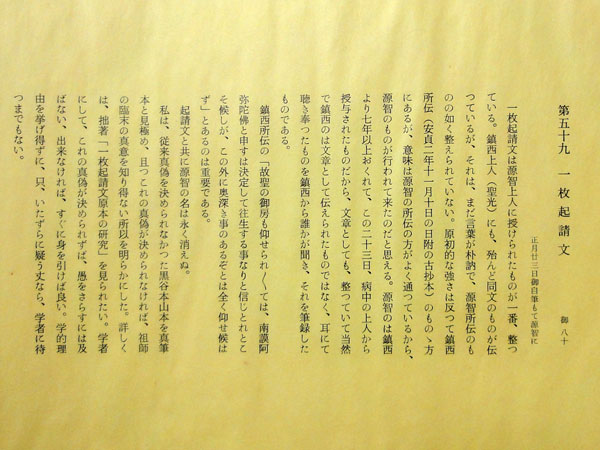 第五十九　一枚起請文
御八十
正月廿三日御自筆もて源智に
一枚起請文は源智上人に授けられたものが一番、整つ
ている。鎮西上人（聖光）にも、殆んど同文のものが伝
つているが、それは、まだ言葉が朴訥で、源智所伝のも
のの如く整えられていない。原初的な強さは反つて鎮西
所伝（安貞二年十一月十日の日附の古抄本）のものゝ方
にあるが、意味は源智の所伝の方がよく通つているから、
源智のものが行われて来たのだと思える。源智のは鎮西
より七年以上おくれて、この二十三日、病中の上人から
授与されたものだから、文章としても、整つていて当然
で鎮西のは文章として伝えられたものではなく、耳にて
聴き奉つたものを鎮西から誰かが聞き、それを筆録した
ものである。
鎮西所伝の「故聖の御房も仰せられ〳〵ては、南謨阿
弥陀佛と申すは決定して往生する事なりと信じとれとこ
そ候しが、この外に奥深き事のあるぞとは全く仰せ候は
ず」とあるのは重要である。
起請文と共に源智の名は永く消えぬ。
私は、従来真偽を決められなかつた黒谷本山本を真筆
本と見極め、且つこれの真偽が決められなければ、祖師
の臨末の真意を知り得ない所以を明らかにした。詳しく
は、拙著「一枚起請文原本の研究」を見られたい。学者
にして、これの真偽が決められずば、愚をさらすには及
ばない、出来なければ、すぐに身を引けば良い。学的理
由を挙げ得ずに、只、いたずらに疑う丈なら、学者に待
つまでもない。